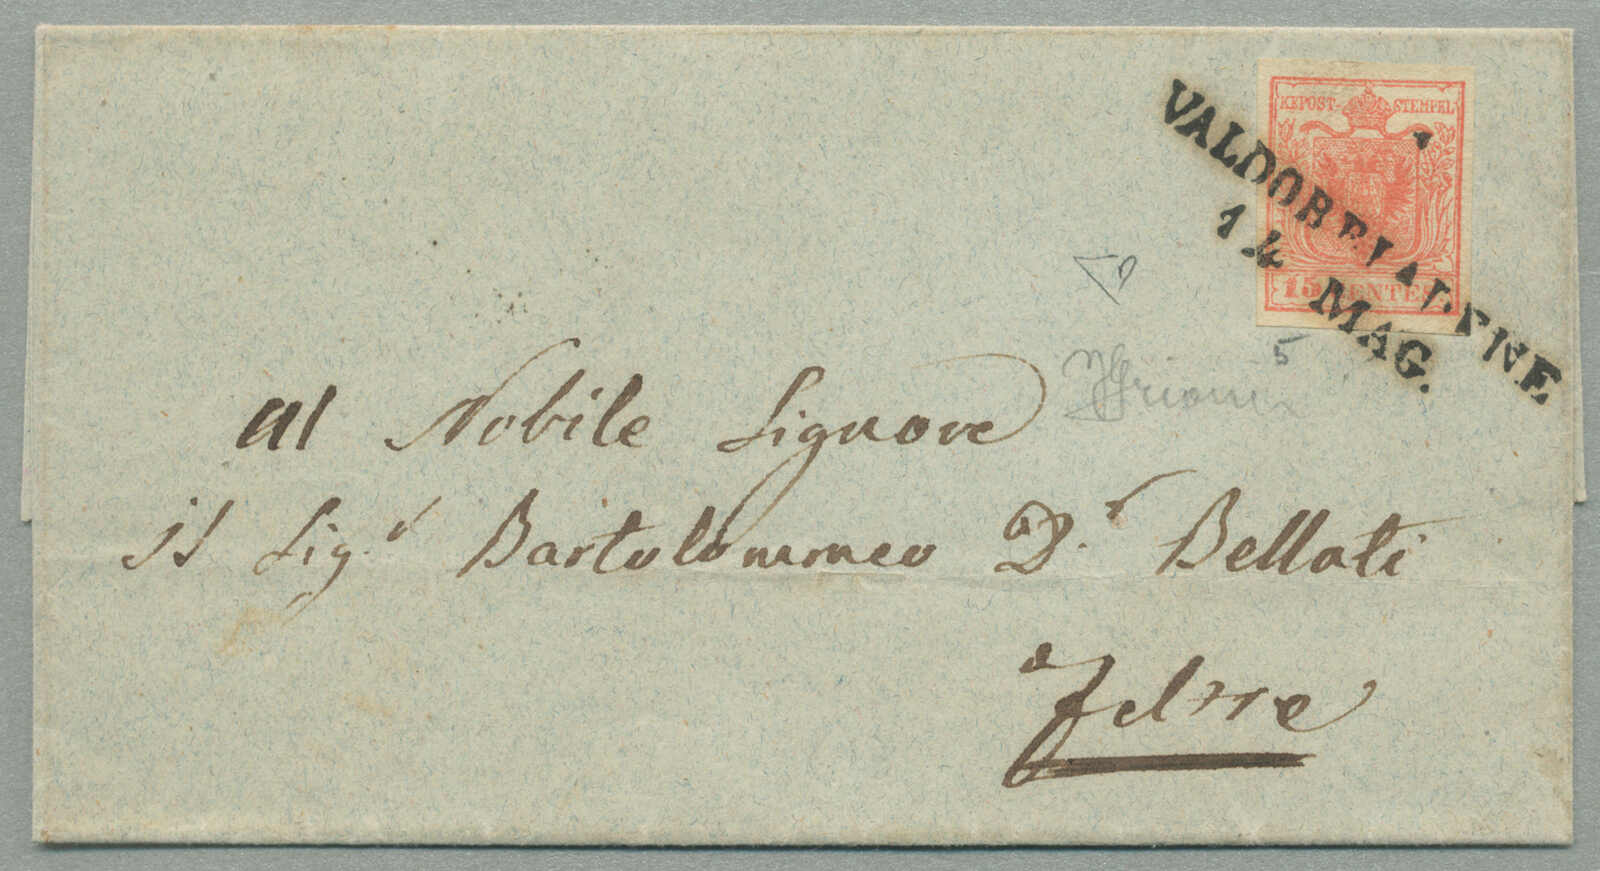 KKPOST-STEMPEL
15 CENTES.
VALDOBBIADENE
14 MAG.
5
Al Nobile Signore
il Sig.r Bartolommeo D.r Bellati
Feltre